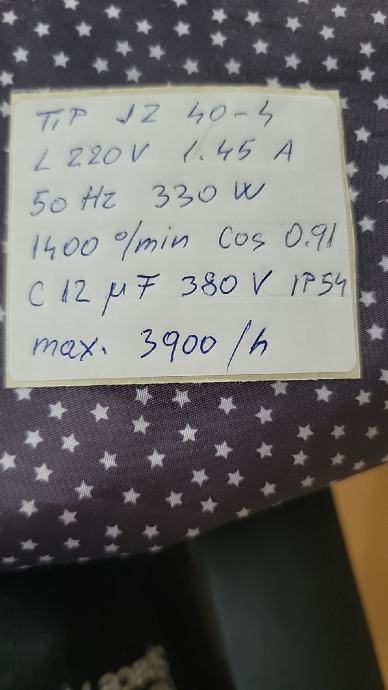 TIP JZ 40-4
L 220V 1.45 A
50 Hz 330 W
1400 °/min Cos 0.91
C 12 µF 380 V IP54
max. 3900 /h